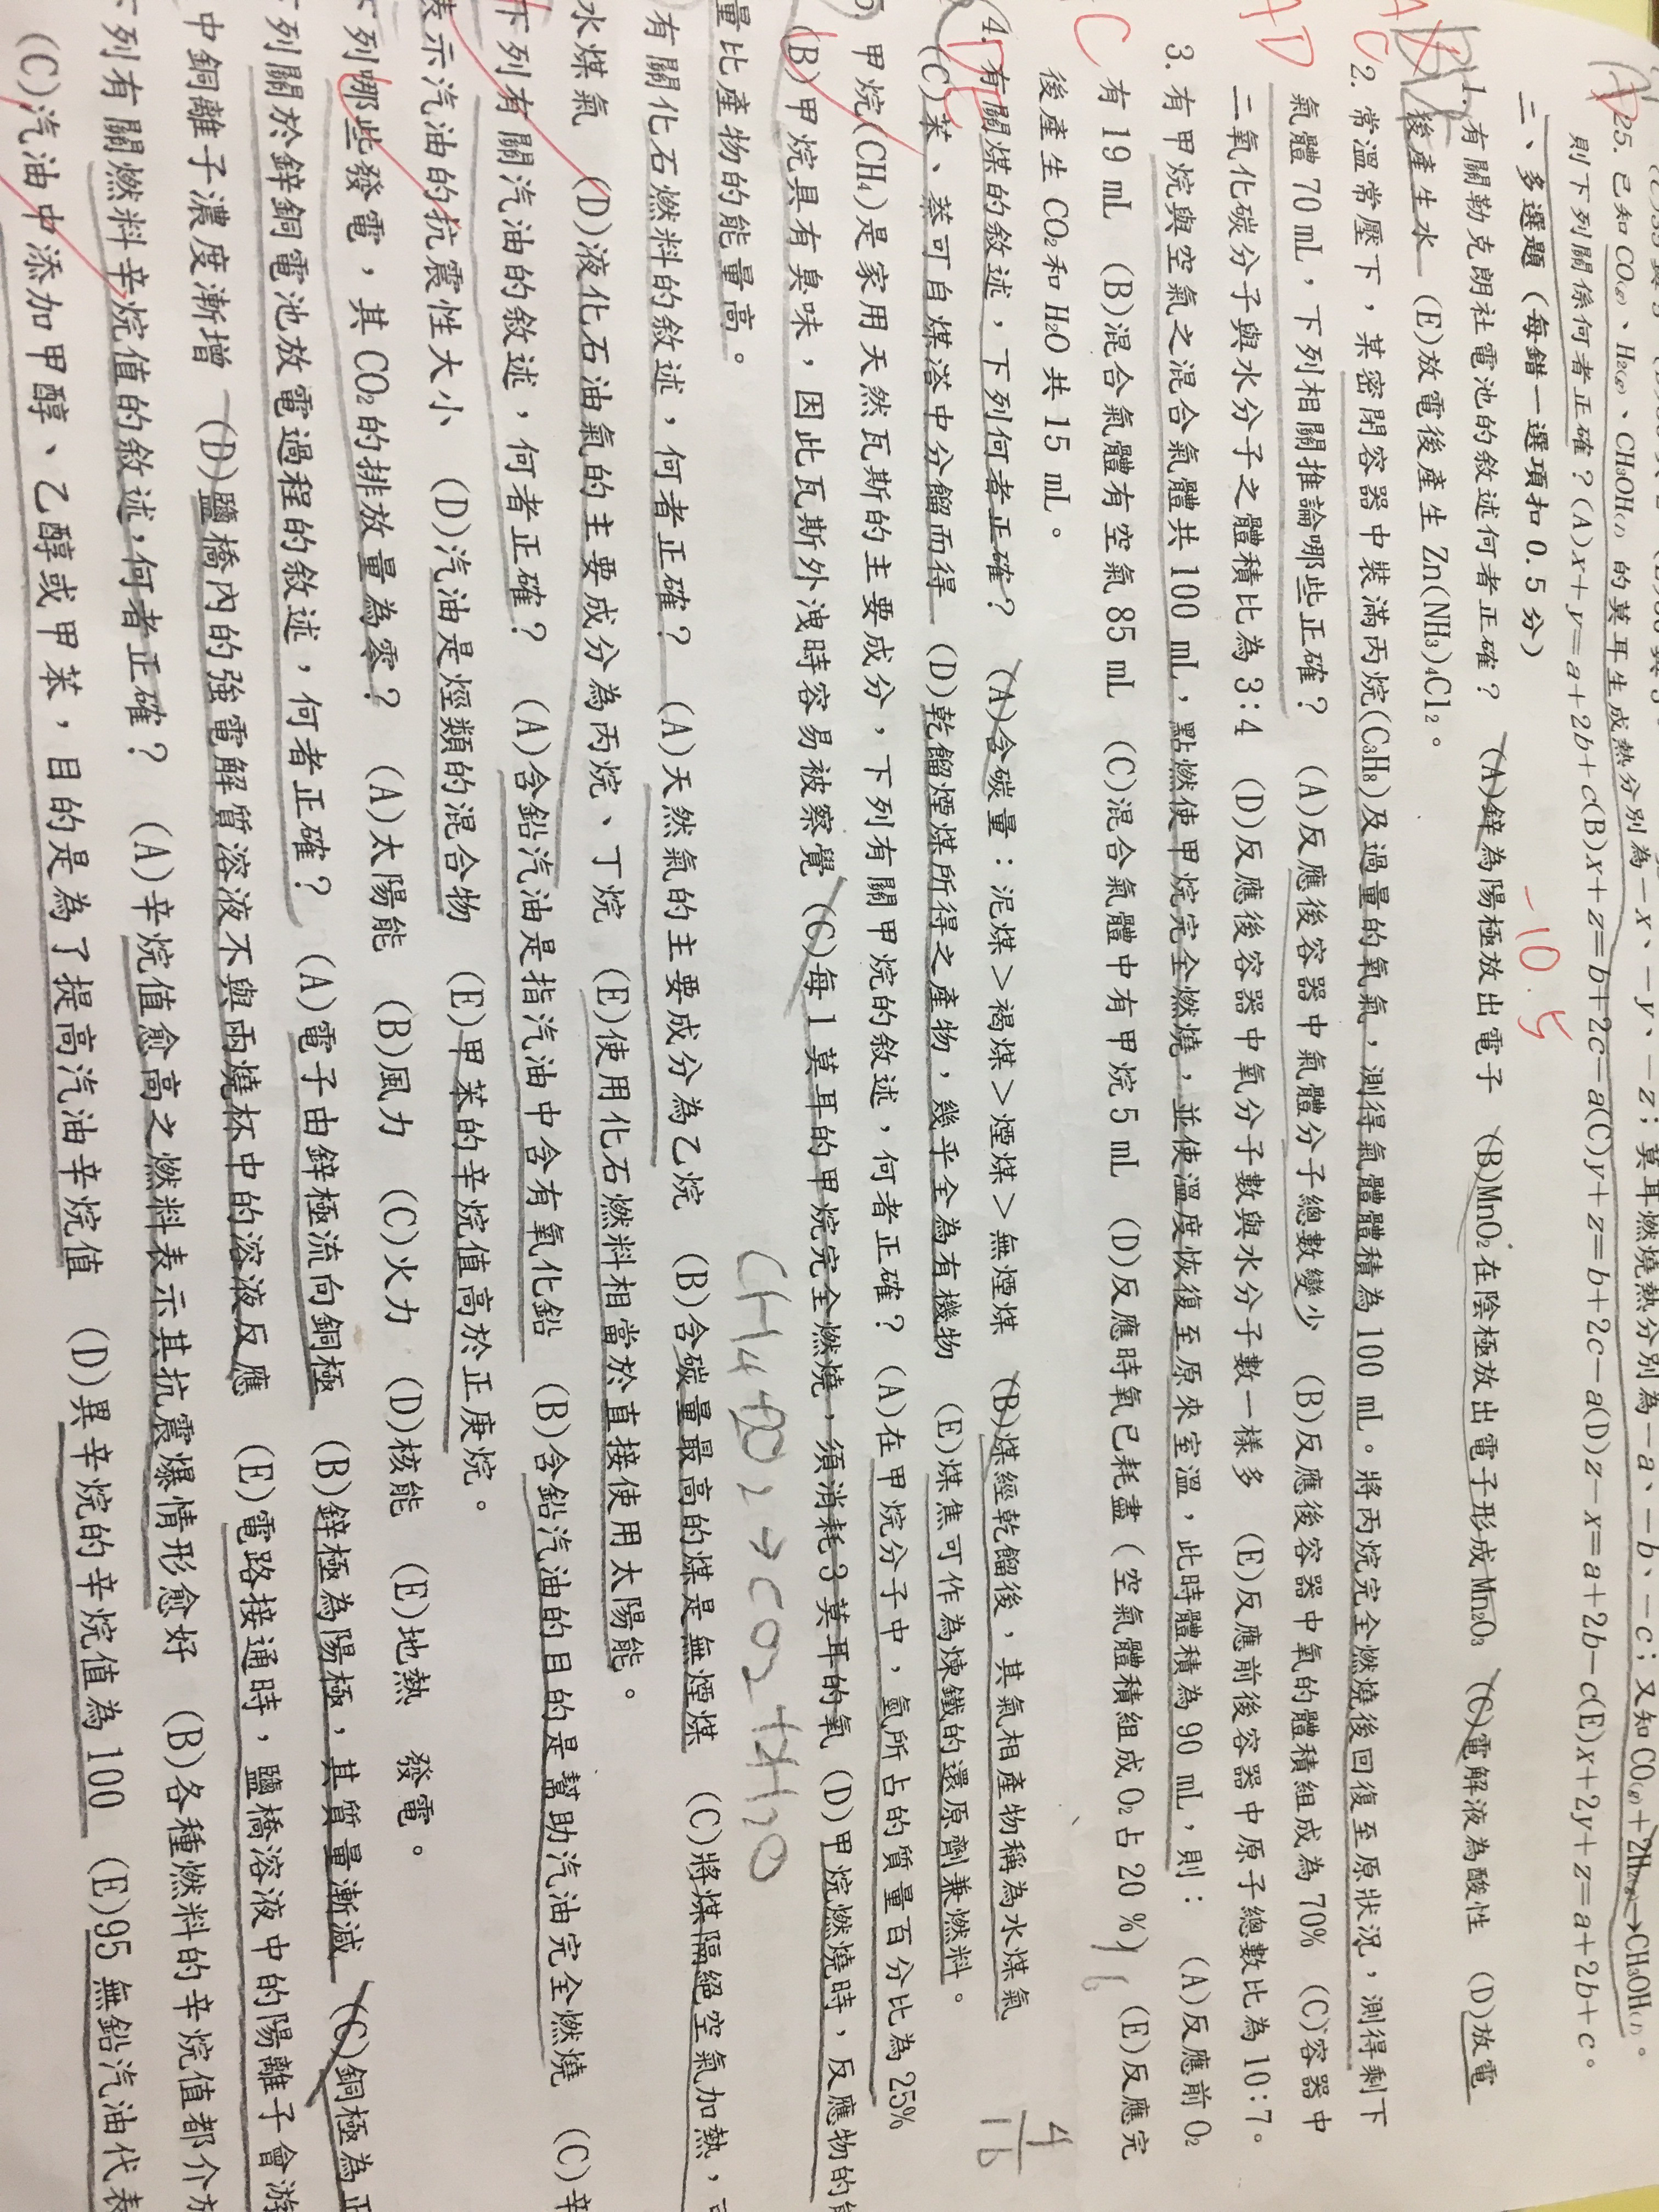 (A)25. 已知 CO(g)、H2(g)、CH3OH(l) 的莫耳生成熱分別為－x、－y、－z；莫耳燃燒熱分別為－a、－b、－c；又知 CO(g)+2H2(g)→CH3OH(l)。
則下列關係何者正確？(A)x+y=a+2b+c(B)x+z=b+2c-a(C)y+z=b+2c-a(D)z-x=a+2b-c(E)x+2y+z=a+2b+c。
二、多選題 (每錯一選項扣 0.5 分)
-10.5
1. 有關勒克朗社電池的敘述何者正確？ (A)鋅為陽極放出電子 (B)MnO2在陰極放出電子形成Mn2O3 (C)電解液為酸性 (D)放電
後產生水 (E)放電後產生 Zn(NH3)4Cl2。
AC
2. 常溫常壓下，某密閉容器中裝滿丙烷(C3H8)及過量的氧氣，測得氣體體積為 100 mL。將丙烷完全燃燒後回復至原狀況，測得剩下
氣體 70 mL，下列相關推論哪些正確？ (A)反應後容器中氣體分子總數變少 (B)反應後容器中氧的體積組成為 70% (C)容器中
AD
二氧化碳分子與水分子之體積比為 3:4 (D)反應後容器中氧分子數與水分子數一樣多 (E)反應前後容器中原子總數比為 10:7。
3. 有甲烷與空氣之混合氣體共 100 mL，點燃使甲烷完全燃燒，並使溫度恢復至原來室溫，此時體積為 90 mL，則： (A)反應前 O2
C
有 19 mL (B)混合氣體有空氣 85 mL (C)混合氣體中有甲烷 5 mL (D)反應時氧已耗盡 (空氣體積組成 O2 占 20 %) (E)反應完
後產生 CO2 和 H2O 共 15 mL。
4. 有關煤的敘述，下列何者正確？ (A)含碳量：泥煤＞褐煤＞煙煤＞無煙煤 (B)煤經乾餾後，其氣相產物稱為水煤氣
(C)苯、萘可自煤溚中分餾而得 (D)乾餾煙煤所得之產物，幾乎全為有機物 (E)煤焦可作為煉鐵的還原劑兼燃料。
4/16
甲烷(CH4)是家用天然瓦斯的主要成分，下列有關甲烷的敘述，何者正確？ (A)在甲烷分子中，氫所占的質量百分比為 25%
(B)甲烷具有臭味，因此瓦斯外洩時容易被察覺 (C)每 1 莫耳的甲烷完全燃燒，須消耗 3 莫耳的氧 (D)甲烷燃燒時，反應物的能
量比產物的能量高。
CH4+2O2→CO2+2H2O
有關化石燃料的敘述，何者正確？ (A)天然氣的主要成分為乙烷 (B)含碳量最高的煤是無煙煤 (C)將煤隔絕空氣加熱，可
水煤氣 (D)液化石油氣的主要成分為丙烷、丁烷 (E)使用化石燃料相當於直接使用太陽能。
下列有關汽油的敘述，何者正確？ (A)含鉛汽油是指汽油中含有氧化鉛 (B)含鉛汽油的目的是幫助汽油完全燃燒 (C)辛
表示汽油的抗震性大小 (D)汽油是烴類的混合物 (E)甲苯的辛烷值高於正庚烷。
下列哪些發電，其 CO2 的排放量為零？ (A)太陽能 (B)風力 (C)火力 (D)核能 (E)地熱 發電。
下列關於鋅銅電池放電過程的敘述，何者正確？ (A)電子由鋅極流向銅極 (B)鋅極為陽極，其質量漸減 (C)銅極為正
中銅離子濃度漸增 (D)鹽橋內的強電解質溶液不與兩燒杯中的溶液反應 (E)電路接通時，鹽橋溶液中的陽離子會游
下列有關燃料辛烷值的敘述，何者正確？ (A)辛烷值愈高之燃料表示其抗震爆情形愈好 (B)各種燃料的辛烷值都介於
(C)汽油中添加甲醇、乙醇或甲苯，目的是為了提高汽油辛烷值 (D)異辛烷的辛烷值為 100 (E)95 無鉛汽油代表